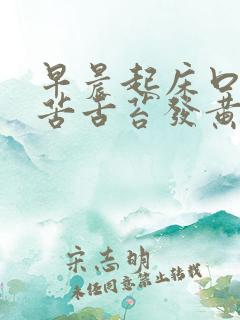 早晨起床口
苦舌苔發黃
宋志明
未经同意禁止转载